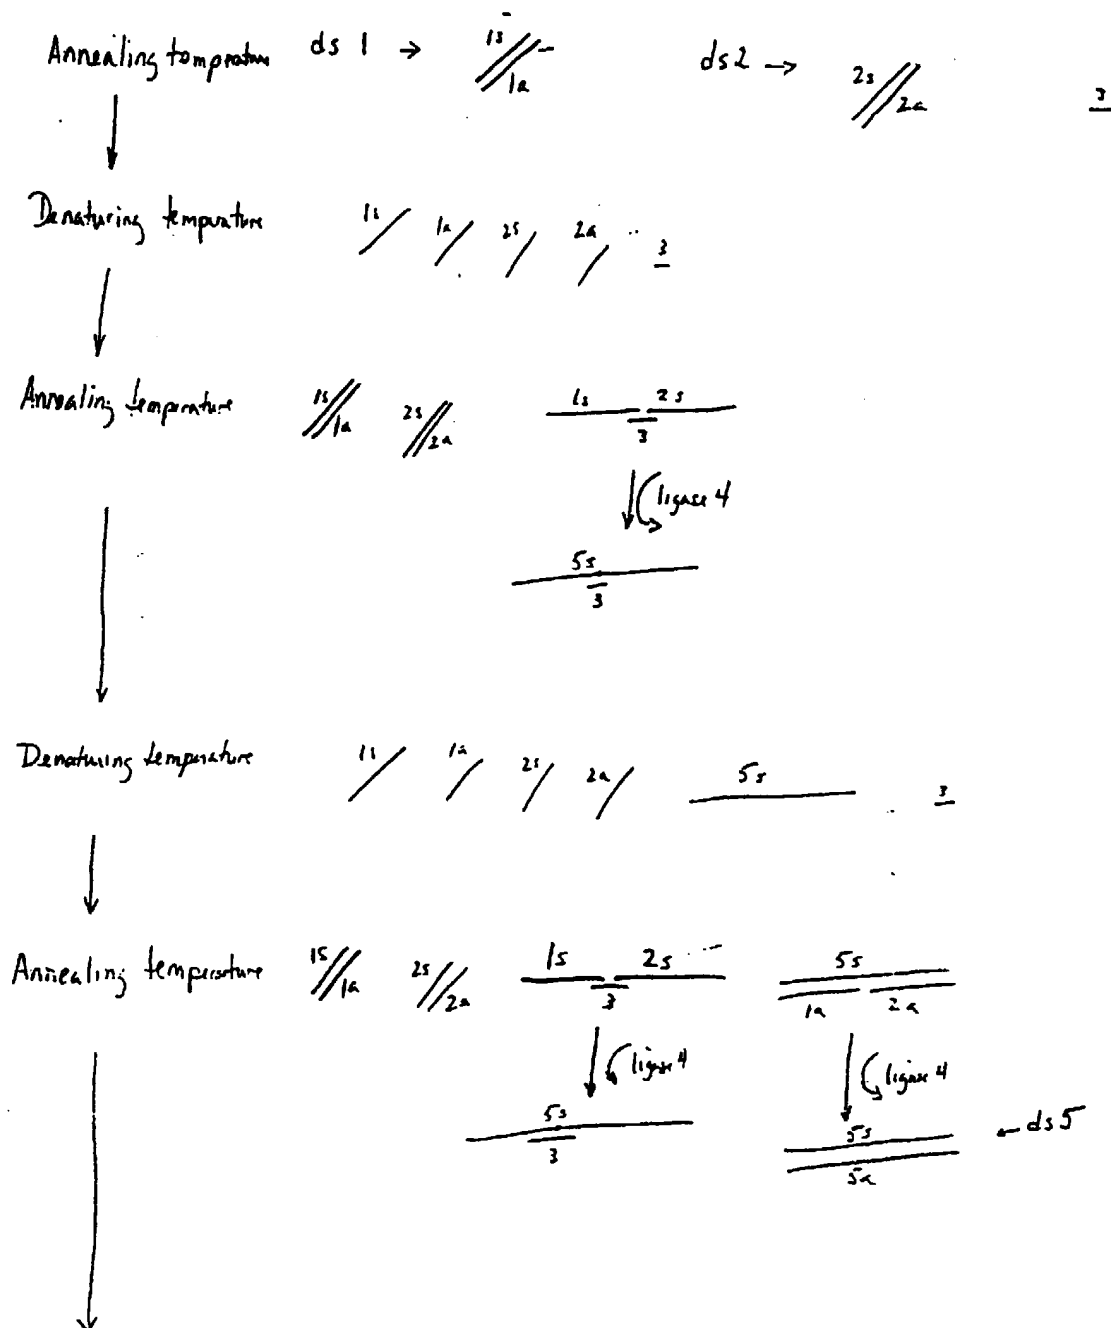 Annealing temperature ds 1 → 1s 1a ds 2 → 2s 2a 3
Denaturing temperature 1s 1a 2s 2a 3
Annealing temperature 1s 1a 2s 2a 1s 2s 3
ligase 4
5s
3
Denaturing temperature 1s 1a 2s 2a 5s 3
Annealing temperature 1s 1a 2s 2a 1s 2s 3 5s 1a 2a
ligase 4 ligase 4
5s 3 5s 5a ← ds 5